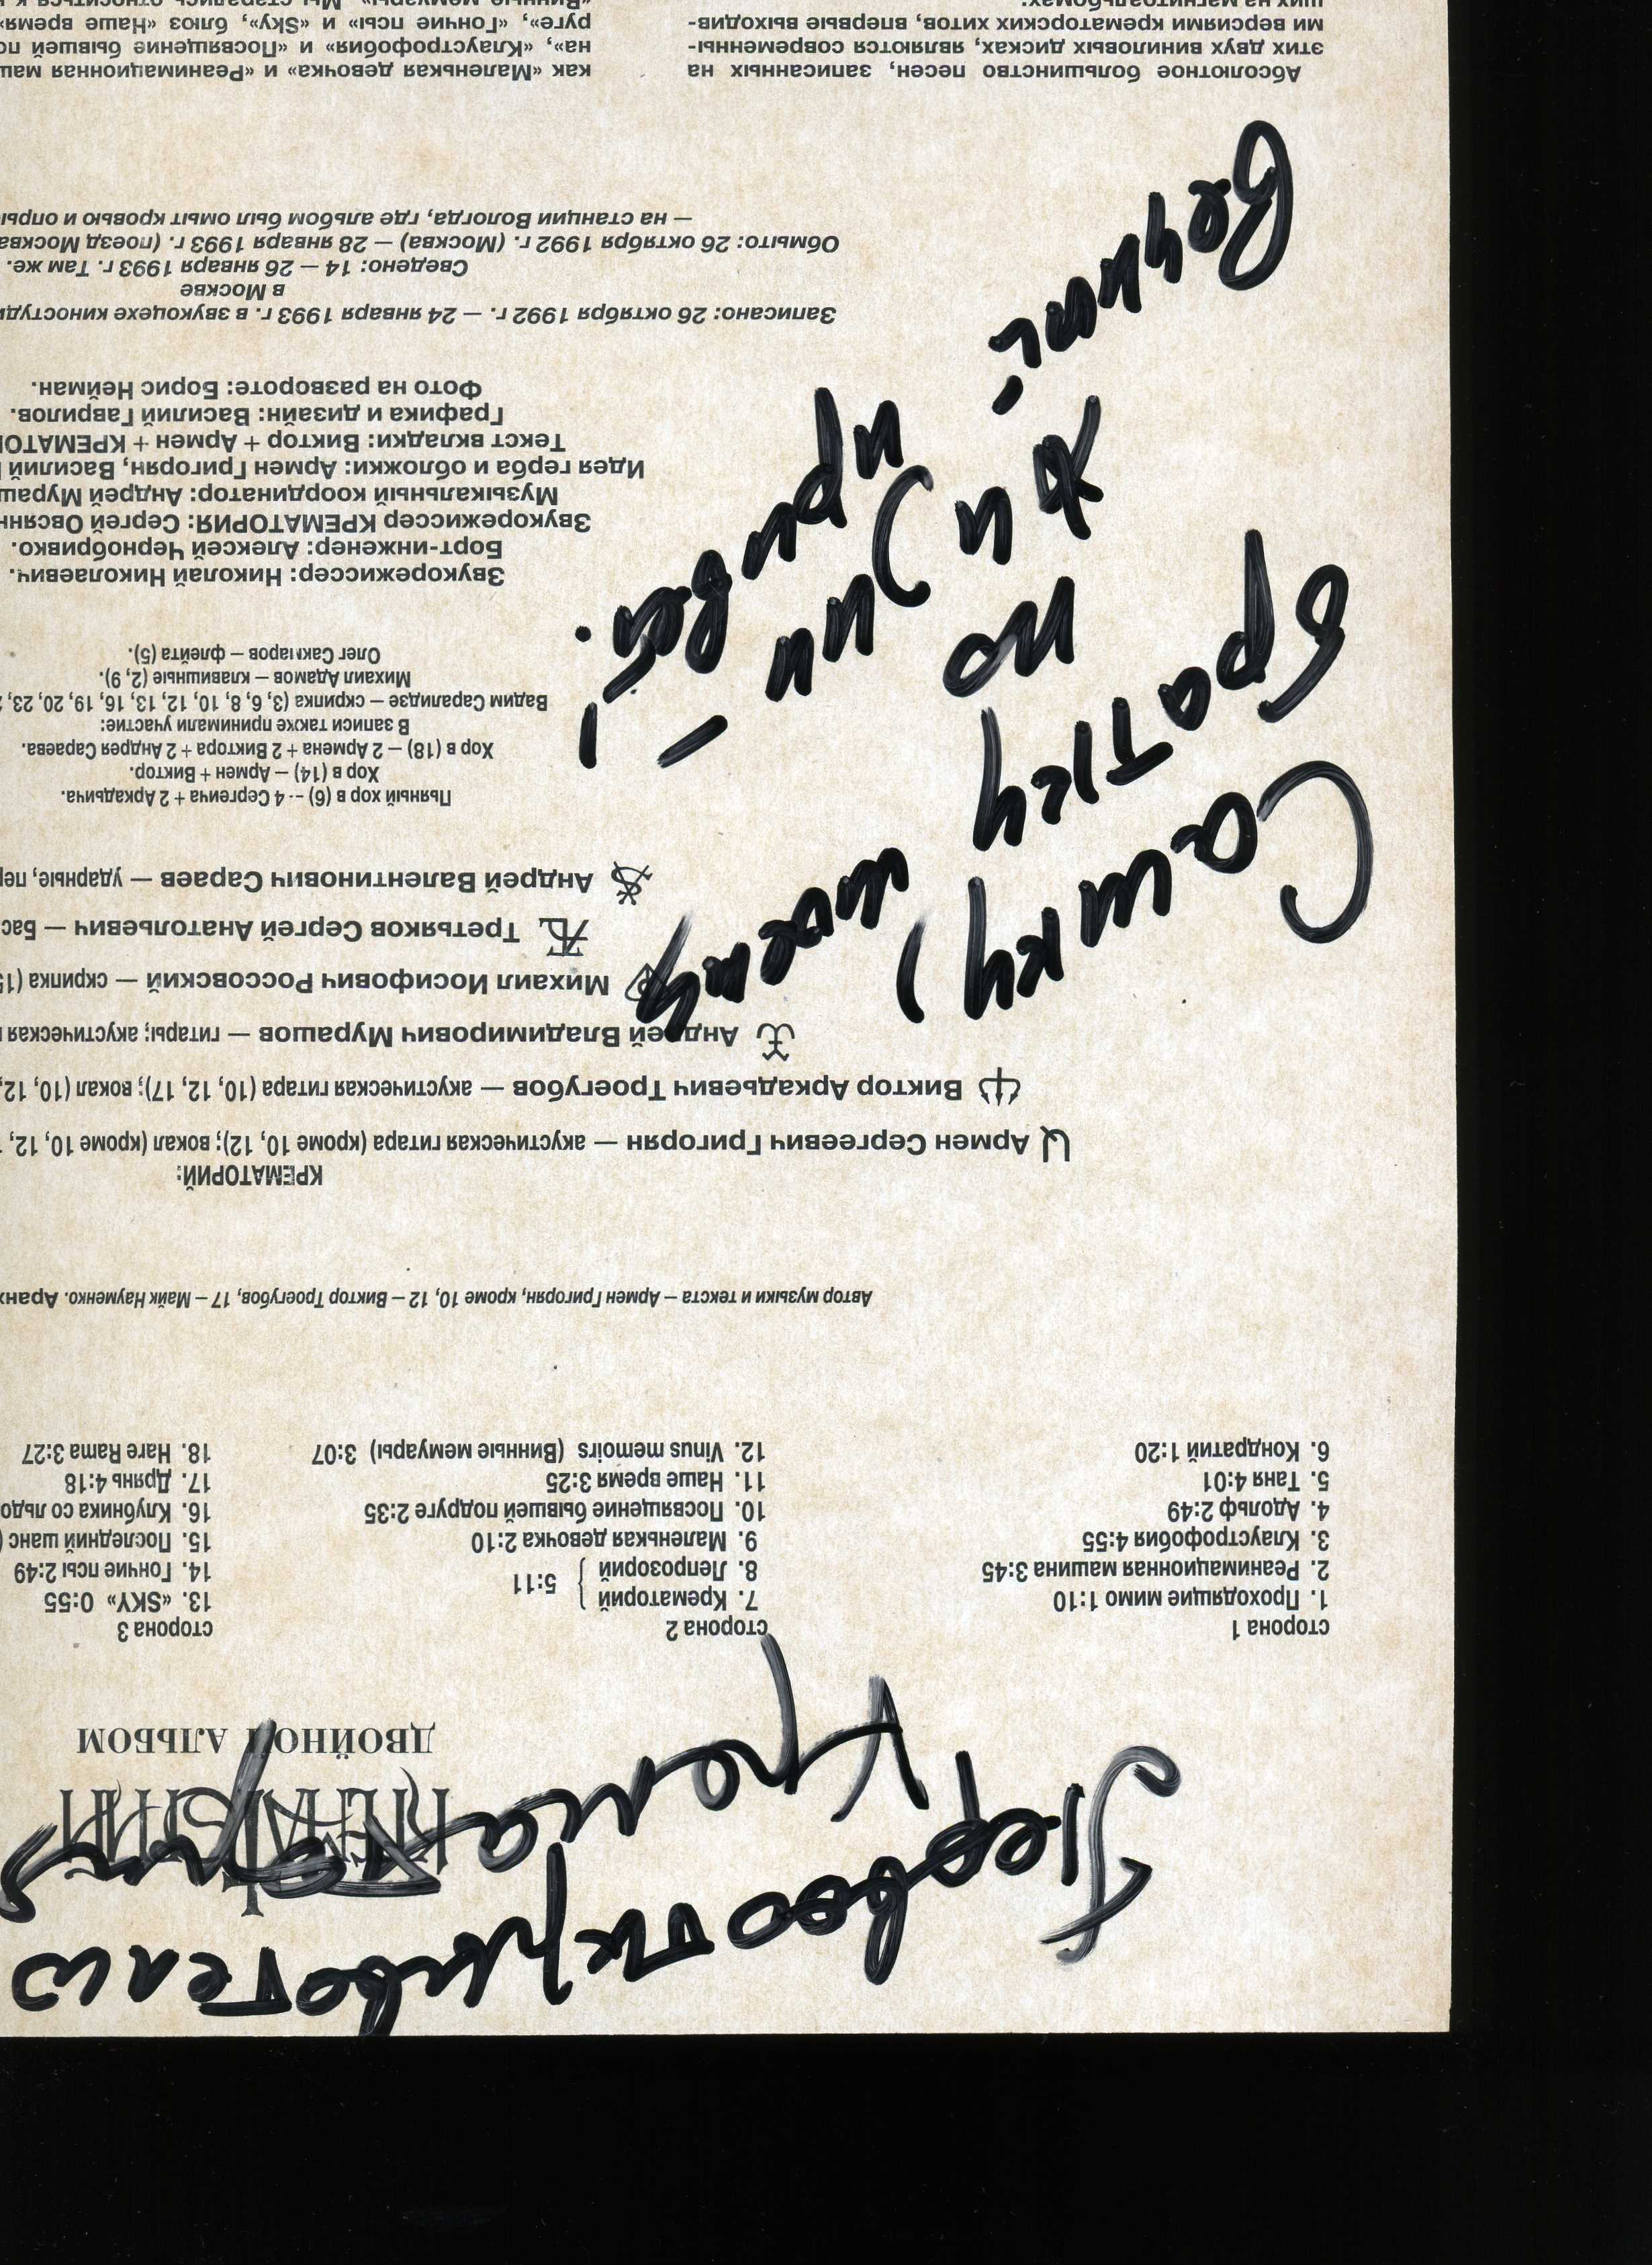 Первооткрывателю
Крематория
КРЕМАТОРИЙ
ДВОЙНОЙ АЛЬБОМ
сторона 1
1. Проходящие мимо 1:10
2. Реанимационная машина 3:45
3. Клаустрофобия 4:55
4. Адольф 2:49
5. Таня 4:01
6. Кондратий 1:20
сторона 2
7. Крематорий
8. Лепрозорий
5:11
9. Маленькая девочка 2:10
10. Посвящение бывшей подруге 2:35
11. Наше время 3:25
12. Vinus memoirs (Винные мемуары) 3:07
сторона 3
13. «SKY» 0:55
14. Гончие псы 2:49
15. Последний шанс (
16. Клубника со льдо
17. Дрянь 4:18
18. Hare Rama 3:27
Автор музыки и текста – Армен Григорян, кроме 10, 12 – Виктор Троегубов, 17 – Майк Науменко. Аран
КРЕМАТОРИЙ:
Армен Сергеевич Григорян — акустическая гитара (кроме 10, 12); вокал (кроме 10, 12,
Виктор Аркадьевич Троегубов — акустическая гитара (10, 12, 17); вокал (10, 12,
Андрей Владимирович Мурашов — гитары; акустическая
Михаил Иосифович Россовский — скрипка (15
Третьяков Сергей Анатольевич — бас
Андрей Валентинович Сараев — ударные, пер
Пьяный хор в (6) -- 4 Сергеича + 2 Аркадьича.
Хор в (14) – Армен + Виктор.
Хор в (18) – 2 Армена + 2 Виктора + 2 Андрея Сараева.
В записи также принимали участие:
Вадим Саралидзе – скрипка (3, 6, 8, 10, 12, 13, 16, 19, 20, 23,
Михаил Адамов – клавишные (2, 9).
Олег Сакмаров – флейта (5).
Звукорежиссер: Николай Николаевич.
Борт-инженер: Алексей Чернобривко.
Звукорежиссер КРЕМАТОРИЯ: Сергей Овсянн
Музыкальный координатор: Андрей Мураш
Идея герба и обложки: Армен Григорян, Василий
Текст вкладки: Виктор + Армен + КРЕМАТО
Графика и дизайн: Василий Гаврилов.
Фото на развороте: Борис Нейман.
Сашку,
нашему
брату
по
Записано: 26 октября 1992 г. — 24 января 1993 г. в звукоцехе киностуди
в Москве
Сведено: 14 — 26 января 1993 г. Там же.
Обмыто: 26 октября 1992 г. (Москва) — 28 января 1993 г. (поезд Москва
— на станции Вологда, где альбом был омыт кровью и опры
Абсолютное большинство песен, записанных на
этих двух виниловых дисках, являются современны-
ми версиями крематорских хитов, впервые выходив-
ших на магнитоальбомах:
как «Маленькая девочка» и «Реанимационная маш
на», «Клаустрофобия» и «Посвящение бывшей по
руге», «Гончие псы» и «Sky», блюз «Наше время»
«Винные мемуары». Мы старались относиться к